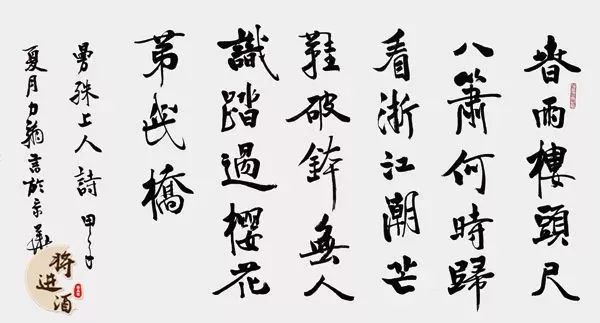 春雨樓頭尺
八簫何時歸
看浙江潮芒
鞋破鉢無人
識踏過櫻花
第幾橋
曼殊上人詩 甲子
夏月力翰書於京華
将进酒